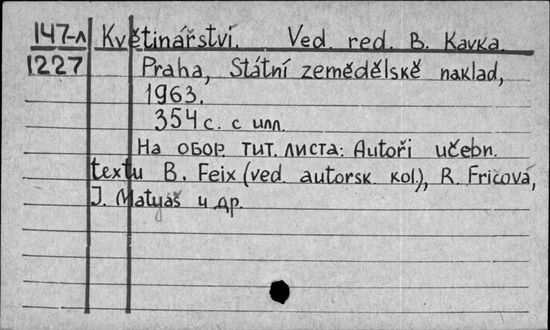 147-л Květinářství. Ved. red. B. Kavka.
1227 Praha, Státní zemědělské naklad,
1963.
354 с. с илл.
На обор. тит. листа: Autoři učebn.
textu B. Feix (ved. autorsk. kol.), R. Fricova,
J. Matyáš и др.